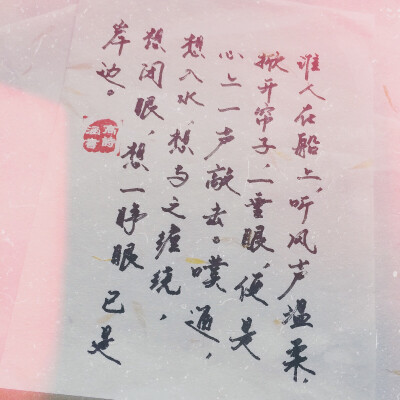 谁人在船上，听风声温柔，
掀开帘子，一垂眼，便是
心上一声敲去。噗通，
想入水，想与之缠绕，
想闭眼，想一睁眼已是
岸边。